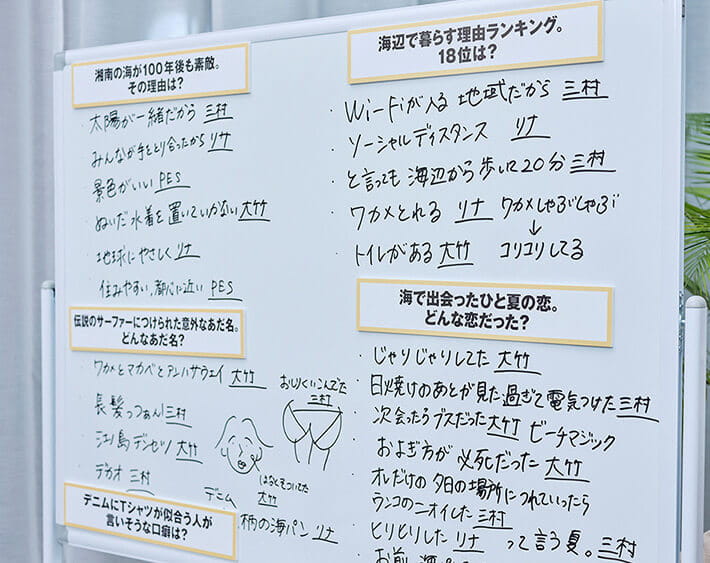 湘南の海が100年後も素敵。
その理由は?
・太陽が一緒だから 三村
・みんなが手をとり合ったから リナ
・景色がいい PES
・ぬいだ水着を置いていかない 大竹
・地球にやさしく リナ
・住みやすい、都心に近い PES
伝説のサーファーにつけられた意外なあだ名。
どんなあだ名?
・ワカメとマカベとアンハサウェイ 大竹
・長髪っつぁん! 三村
・江ノ島デンセツ 大竹
・デカオ 三村
おしりくいこんでた
三村
はなくそついてた
大竹
デニム
柄の海パン リナ
デニムにTシャツが似合う人が
言いそうな口癖は?
海辺で暮らす理由ランキング。
18位は?
・Wi-Fiが入る 地域だから 三村
・ソーシャルディスタンス リナ
・と言っても 海辺から歩いて20分 三村
・ワカメとれる リナ ワカメしゃぶしゃぶ
↓
・トイレがある 大竹 コリコリしてる
海で出会ったひと夏の恋。
どんな恋だった?
・じゃりじゃりしてた 大竹
・日焼けのあとが見た過ぎて電気つけた 三村
・次会ったらブスだった 大竹 ビーチマジック
・およぎ方が 必死だった 大竹
・オレだけの夕日の場所につれていったら
ウンコのニオイした 三村
・ヒリヒリした リナ って言う夏。三村
・お前